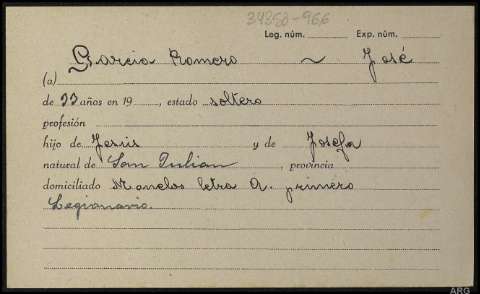 34350-966
Leg. núm. Exp. núm.
García Romero ~ José
(a)
de 33 años en 19 , estado soltero
profesión
hijo de Jesús y de Josefa
natural de San Julian , provincia
domiciliado letra A. primero
Legionario.
ARG